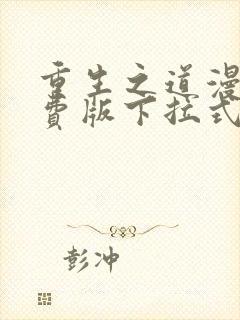 重生之道漫
费版下拉式
彭冲